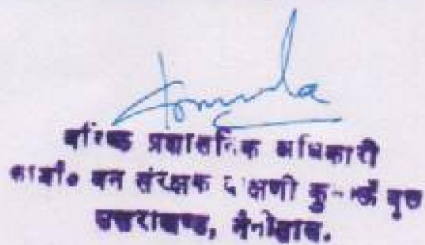 वरिष्ठ प्रशासनिक अधिकारी
कार्या० वन संरक्षक दक्षिणी कुमाऊँ वृत्त
उत्तराखण्ड, नैनीताल.